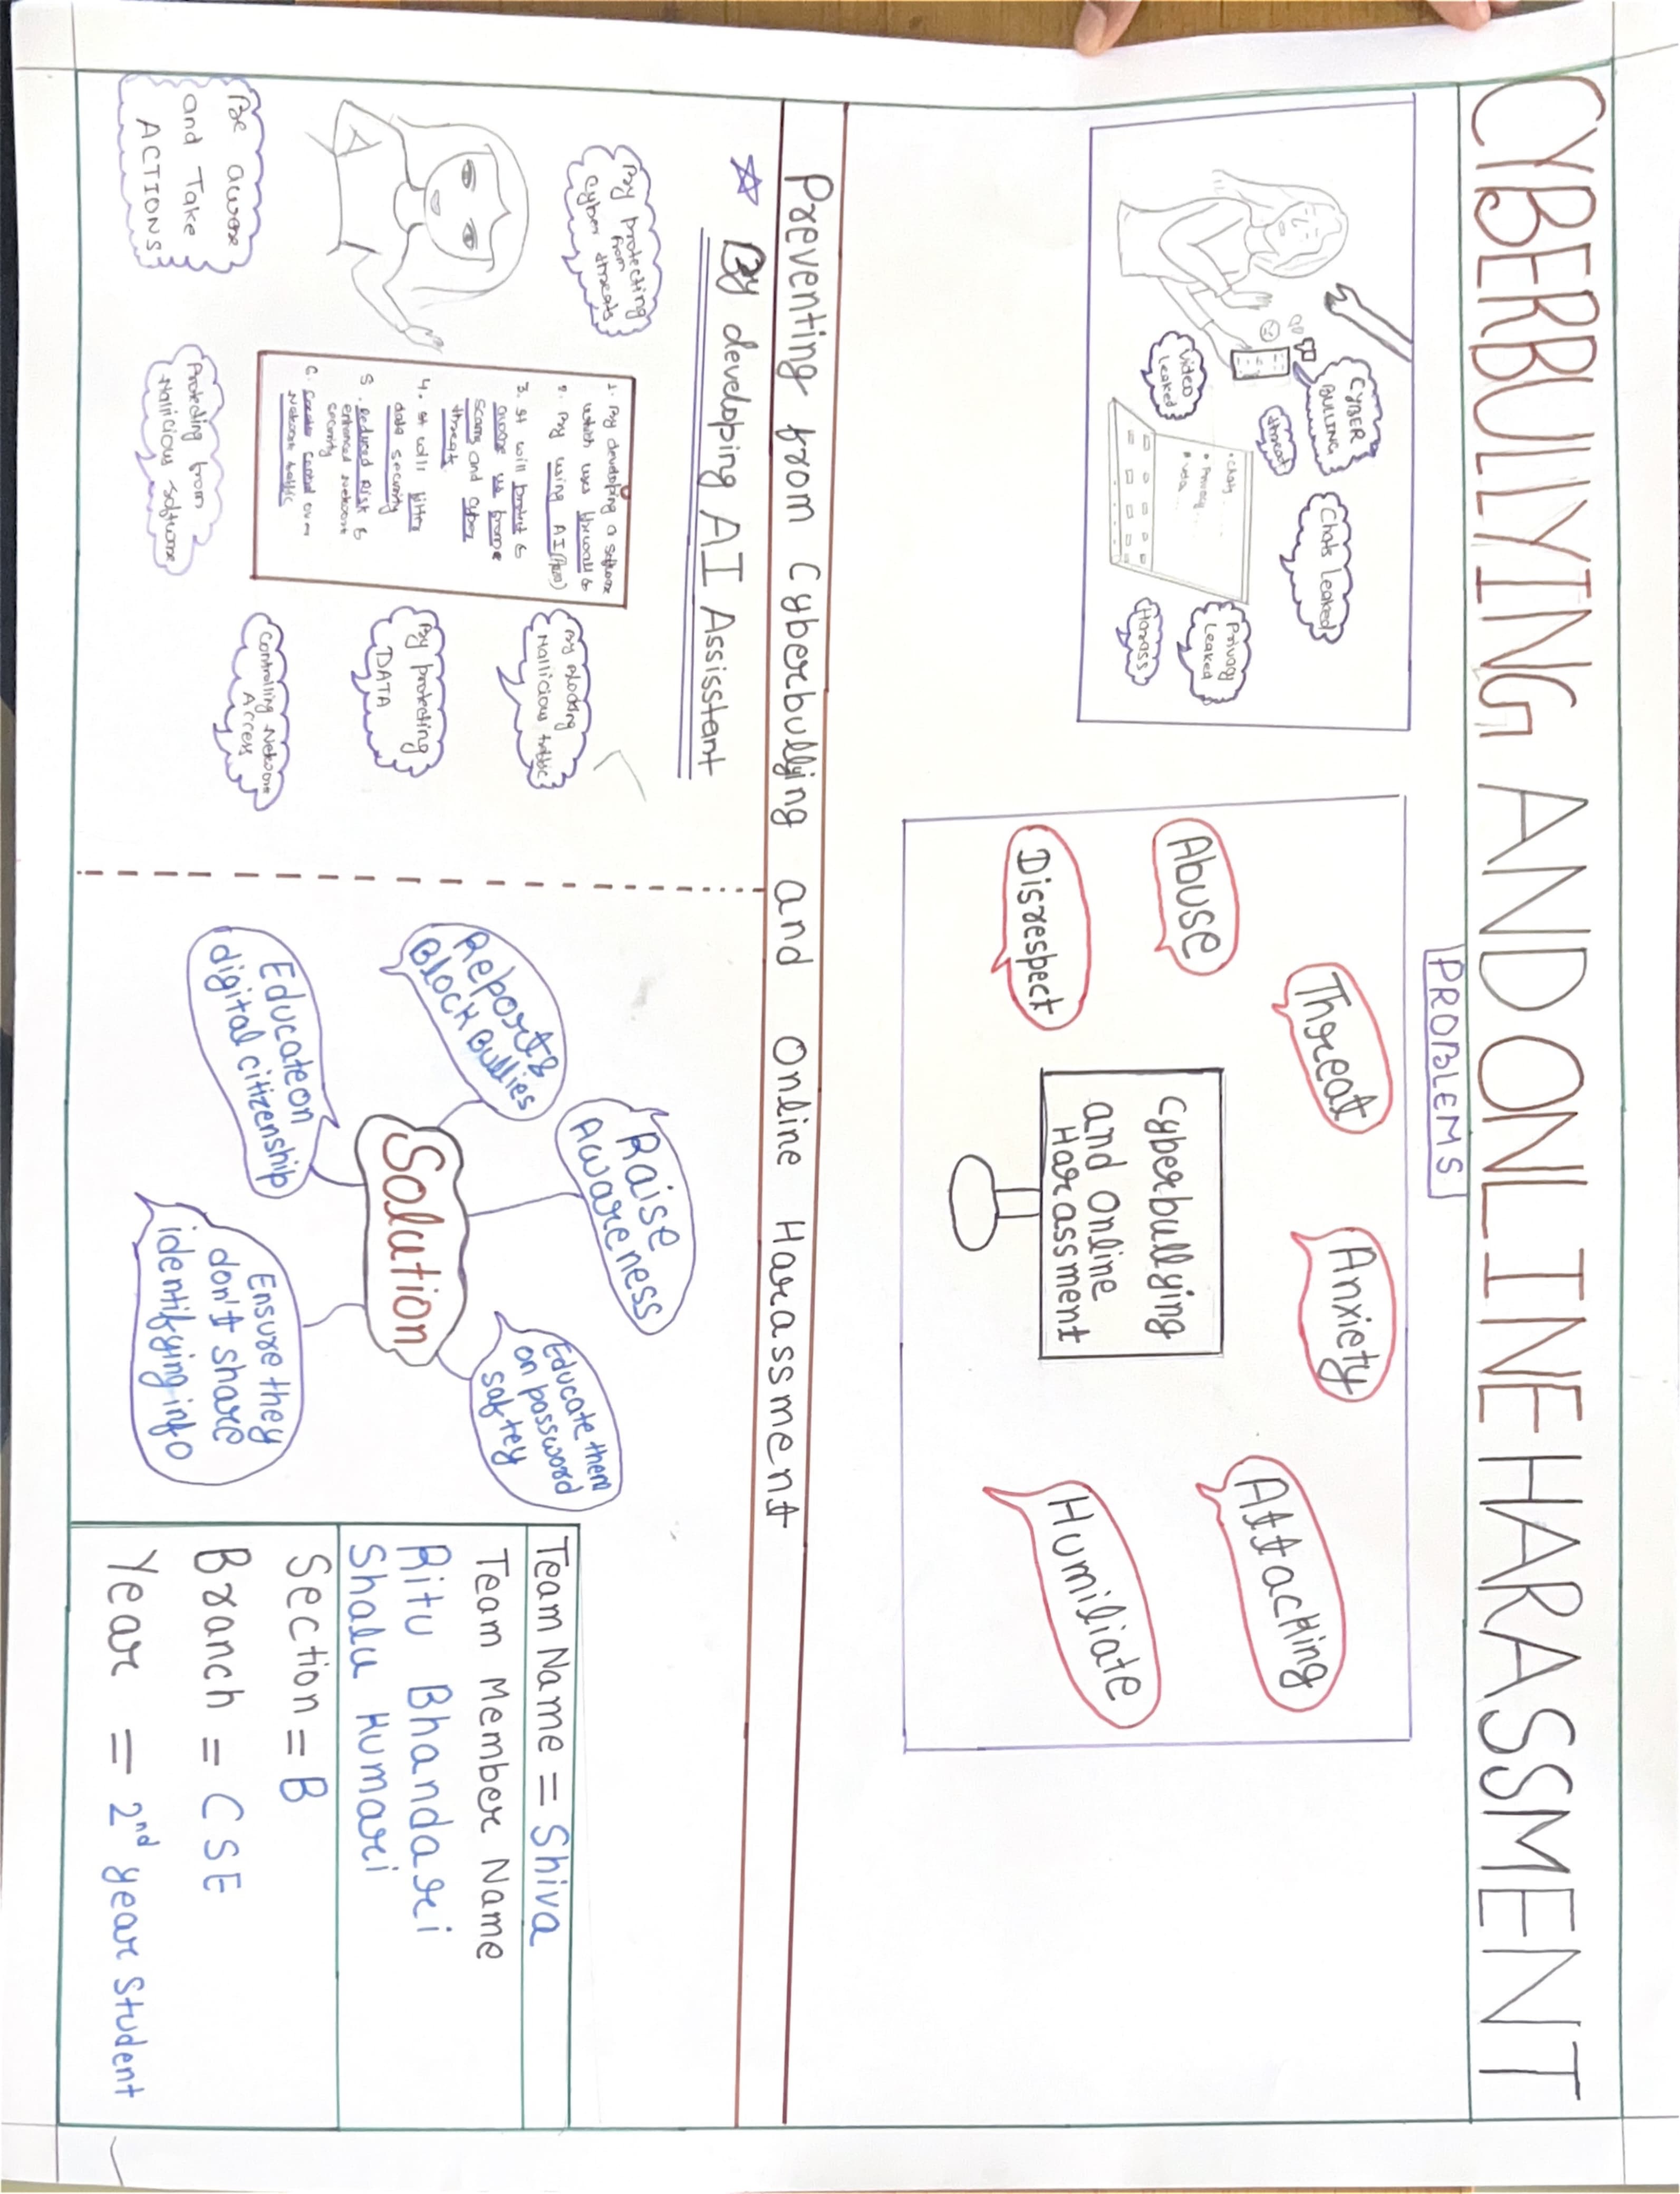 CYBERBULLYING AND ONLINE HARASSMENT
PROBLEMS
CYBER
BULLING
threat
Video
Leaked
Chats leaked
Privacy
Leaked
Harass
• Chats
• Privacy
Abuse
Disrespect
Threat
Anxiety
Attacking
Humiliate
Cyberbullying
and online
Harassment
Preventing from Cyberbullying and Online Harassment
☆ By developing AI Assisstant
By protecting
from
cyber threats
1. By developing a software
which uses firewall &
2. By using AI
3. It will protect &
aware us frome
scams and cyber
threats
4. It will filter
data security
5. Reduced Risk &
enhanced network
security
6. Greater Control over
Network traffic
By blocking
Mallicious trabbic
By protecting
DATA
Controlling Network
Access
Protecting from
Malicious software
Be aware
and Take
ACTIONS
Solution
Report &
Block Bullies
Raise
Awareness
Educate on
digital citizenship
Educate them
on password
saftey
Ensure they
don't share
identifying info
Team Name = Shiva
Team Member Name
Ritu Bhandari
Shalu Kumari
Section = B
Branch = CSE
Year = 2nd year student